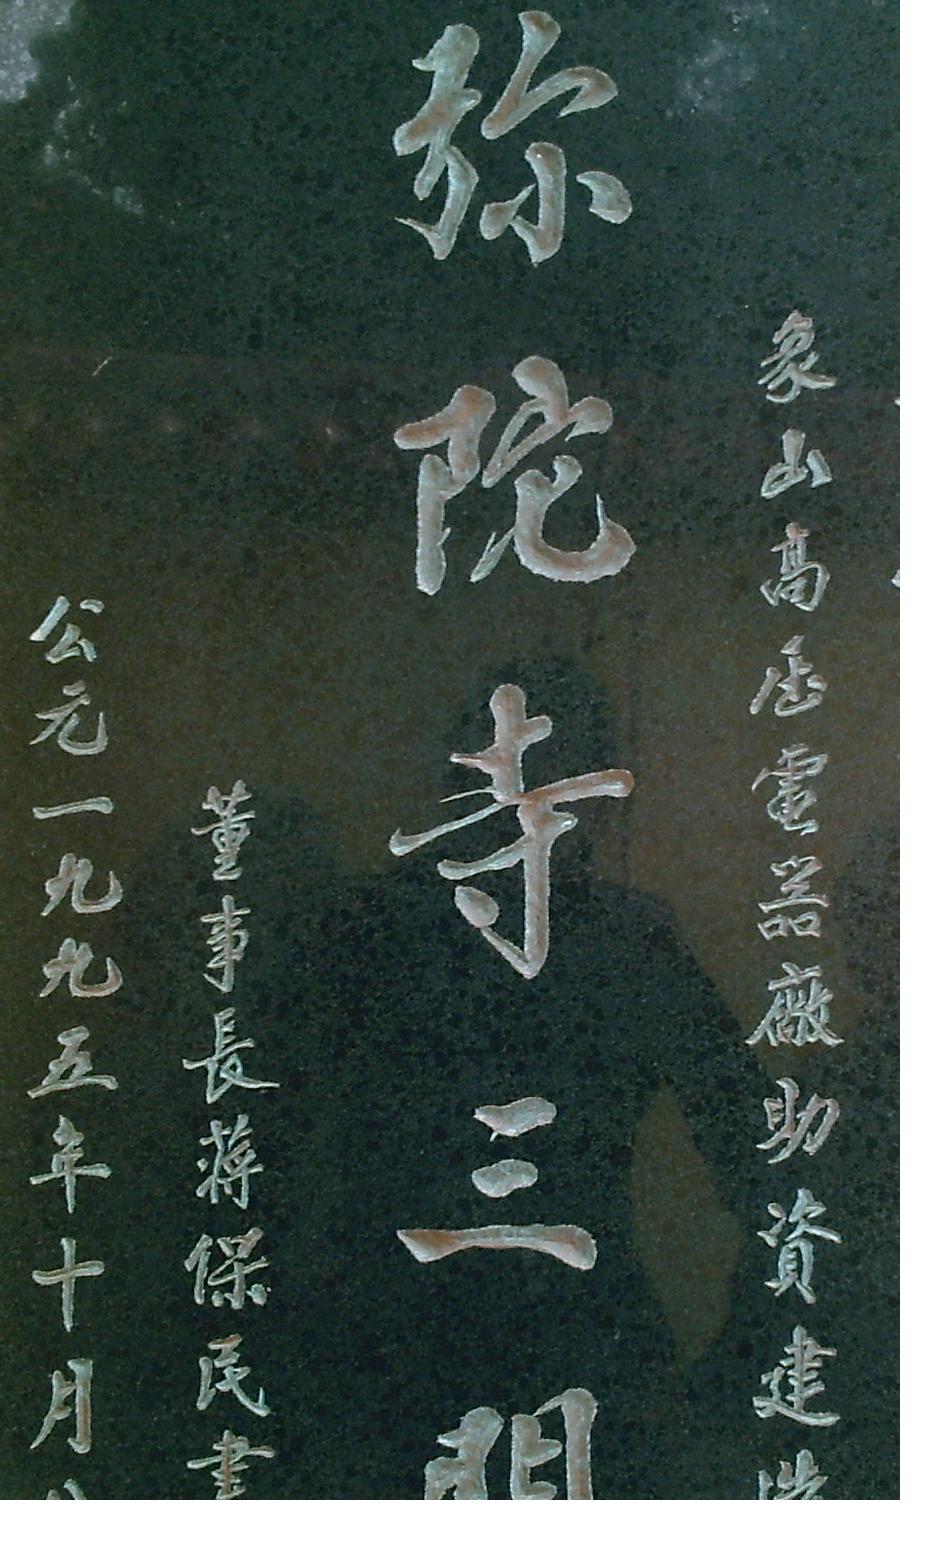 象山高压電器廠助資建造
弥陀寺三門
董事長蔣保民書
公元一九九五年十月